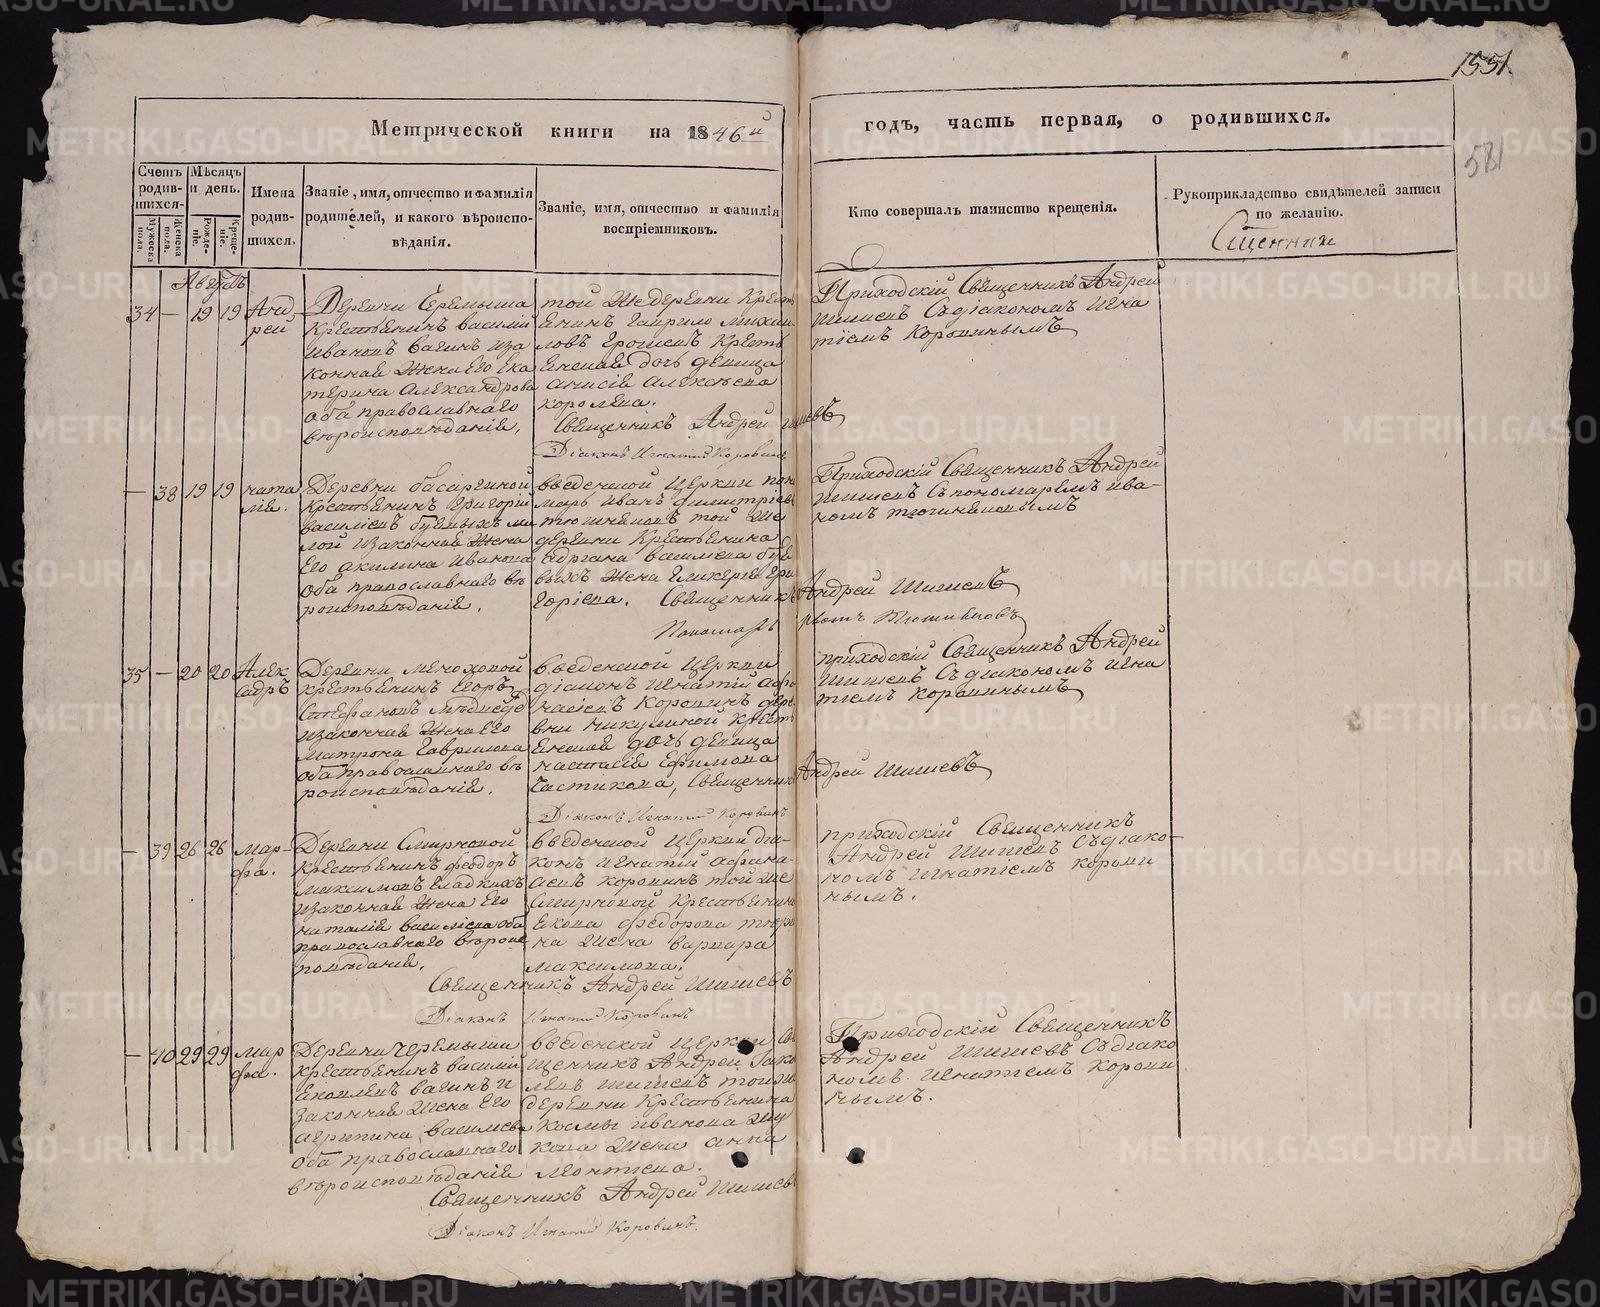 1551.
581
Метрической книги на 1846й
годъ, часть первая, о родившихся.
Счетъ родив-шихся.
Мужеска пола.
Женска пола.
Мѣсяцъ и день.
Рожде-ніе.
Креще-ніе.
Имена родив-шихся.
Званіе, имя, отчество и фамилія
родителей, и какого вѣроиспо-
вѣданія.
Званіе, имя, отчество и фамилія
воспріемниковъ.
Кто совершалъ таинство крещенія.
Рукоприкладство свидѣтелей записи
по желанію.
Августъ
34 — 19 19 Анд-
рей
Деревни Черемыша
крестьянинъ василій
Ивановъ вагинъ иза
конная жена его Ека
терина Александрова
оба православнаго
вѣроисповѣданія.
той же деревни Крест
янинъ Гаврило михаи
ловъ
дочь девица
анисія алексѣева
королева.
Священникъ Андрей
Діаконъ Игнатій Коровинъ
Приходскій Священникъ Андрей
Шишевъ Съ діакономъ Игна
тіемъ Коровинымъ
— 38 19 19 ната
лія.
Деревни басаргиной
крестьянинъ Григорій
василіевъ
изаконная жена
Его акилина Иванова
оба православнаго вѣ
роисповѣданія.
введенской церкви поно
марь Иванъ димитріевъ
той же
деревни Крестьянина
василіева
жена Гликерія Гри
горіева. Священникъ Андрей Шишевъ
Пономарь
Приходскій Священникъ Андрей
Шишевъ Съ пономаремъ ива-
номъ
35 — 20 20 Алек
садръ
Деревни
крестьянинъ Егоръ
Стефановъ
изаконная жена его
Матрона Гаврилова
оба православнаго вѣ
роисповѣданія.
введенской церкви
діаконъ Игнатій афа
насіевъ Коровинъ дере
вни никулиной крест
янская дочь девица
настасія Ефимова
Частикова, Священникъ Андрей Шишевъ
Діаконъ Игнатій Коровинъ
приходскій Священникъ Андрей
Шишевъ Съ діакономъ игна
тіемъ коровинымъ
— 39 26 26 мар-
фа.
Деревни Смирновой
Крестьянинъ феодоръ
максимовъ гладкихъ
изаконная жена его
наталія василіева оба
православнаго вѣроис
повѣданія.
введенской церкви діа-
конъ игнатій афана-
сіевъ коровинъ той же
Смирновой крестьянина
якова федорова
жена варвара
максимова.
Священникъ Андрей Шишевъ
Діаконъ Игнатій Коровинъ
приходскій Священникъ
Андрей Шишевъ Съ діако-
номъ игнатіемъ корови
нымъ.
— 40 29 29 мар
фа.
Деревни Черемыша
крестьянинъ василій
яковлевъ вагинъ и
законная жена его
агрипина василева
оба православнаго
вѣроисповѣданія
введенской церкви Св
ященникъ Андрей Іако
влевъ Шишевъ той же
деревни Крестьянина
Космы иванова
жена анна
леонтіева.
Священникъ Андрей Шишевъ
Діаконъ Игнатій Коровинъ.
Приходскій Священникъ
Андрей Шишевъ Съ діако
номъ. игнатіемъ корови
нымъ.